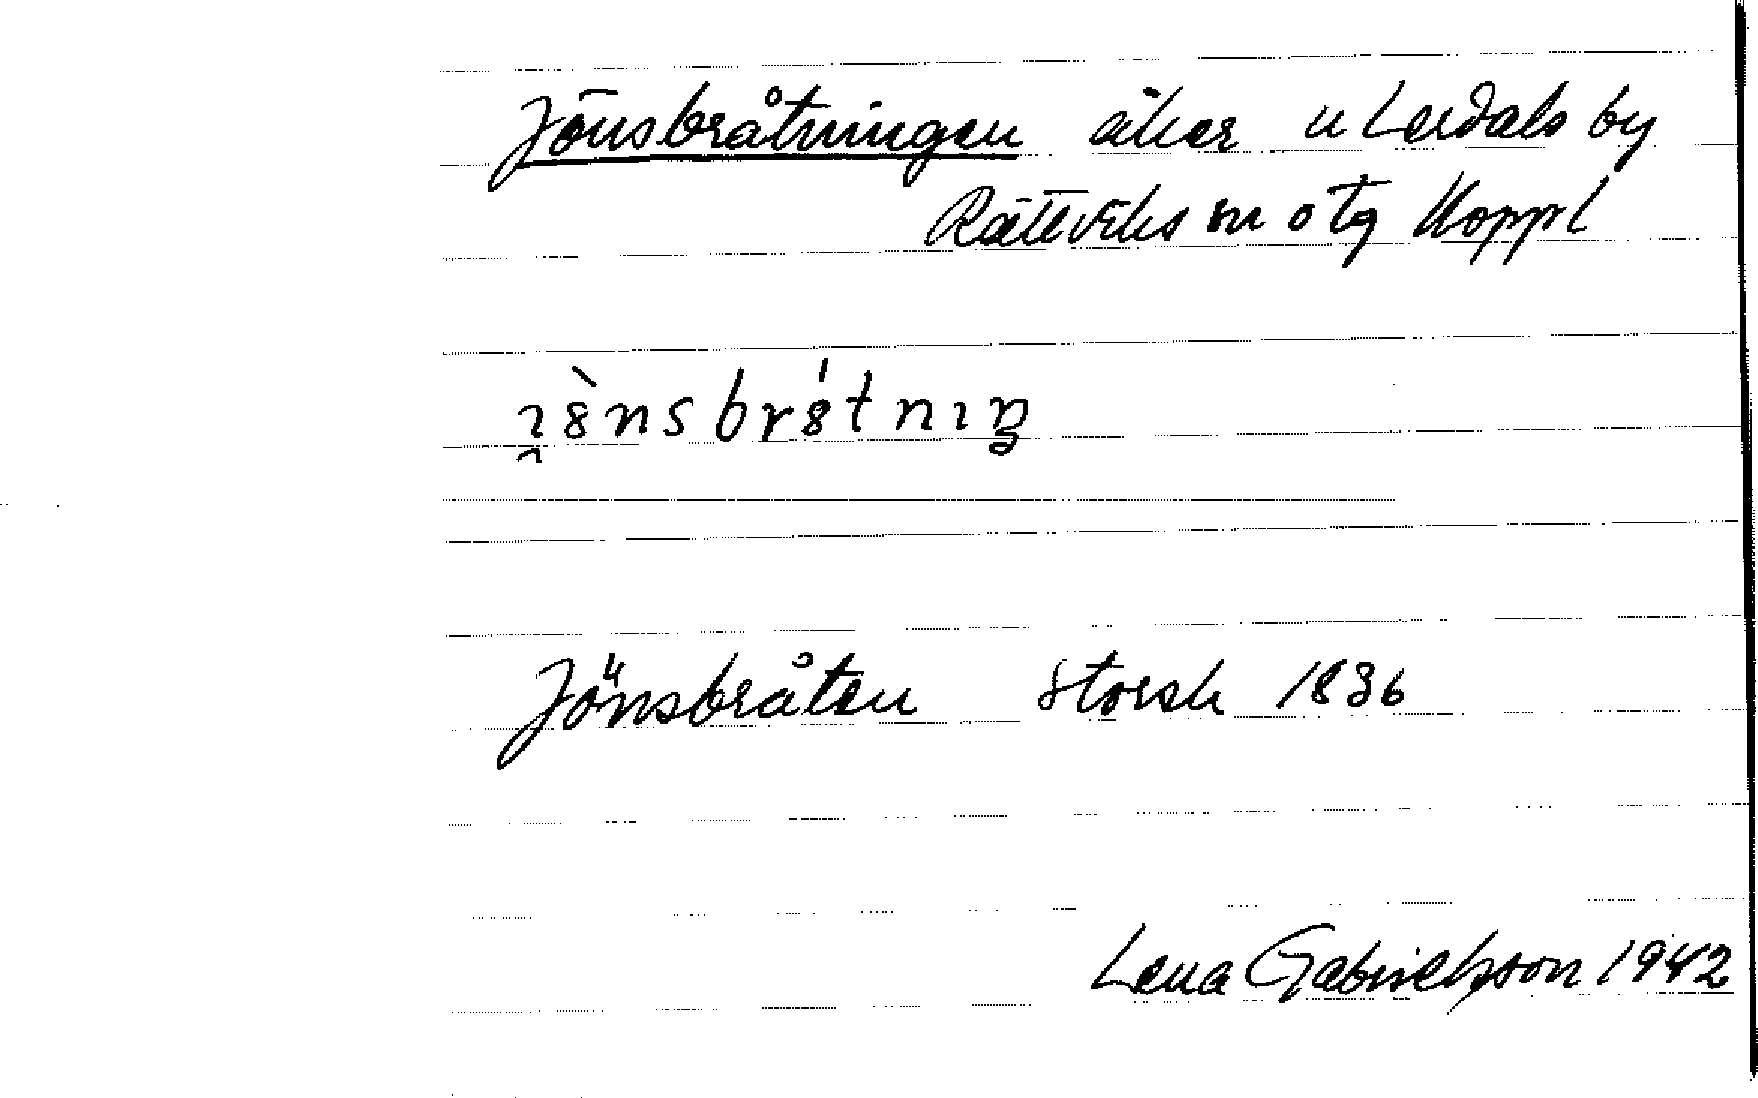 Jönsbråtningen åker u Lerdals by
Rättviks sn o tg Koppl
Jönsbråten Storsk 1836
Lena Gabrielsson 1942